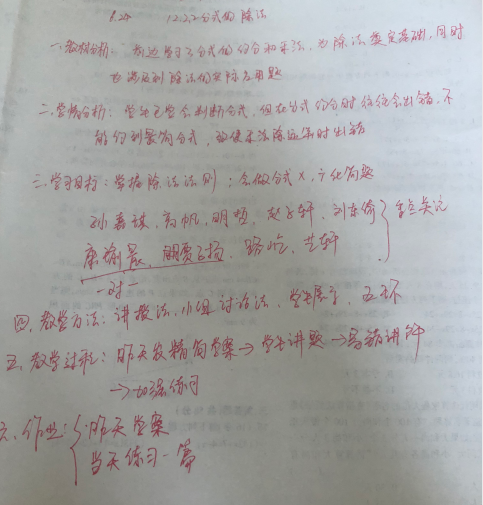 8.24 12.2.2分式的除法
一、教材分析：前边学习了分式的约分和乘法，为除法奠定基础，同时
也涉及到除法的实际应用题
二、学情分析：学生已学会判断分式，但在分式约分时往往会出错，不
能约到最简分式，致使乘法除运算时出错
三、学习目标：掌握除法法则；会做分式×，÷化简题
孙嘉谋，高帆，明恒，赵子轩，刘东 重点关注
康瑜晨，贾子扬，路 ，艺轩
一对一
四、教学方法：讲授法，小组讨论法，学生展示，互环
五、教学过程：昨天发精简学案→学生讲题→易错讲解
→加强练习
六、作业：昨天学案
当天练习一篇